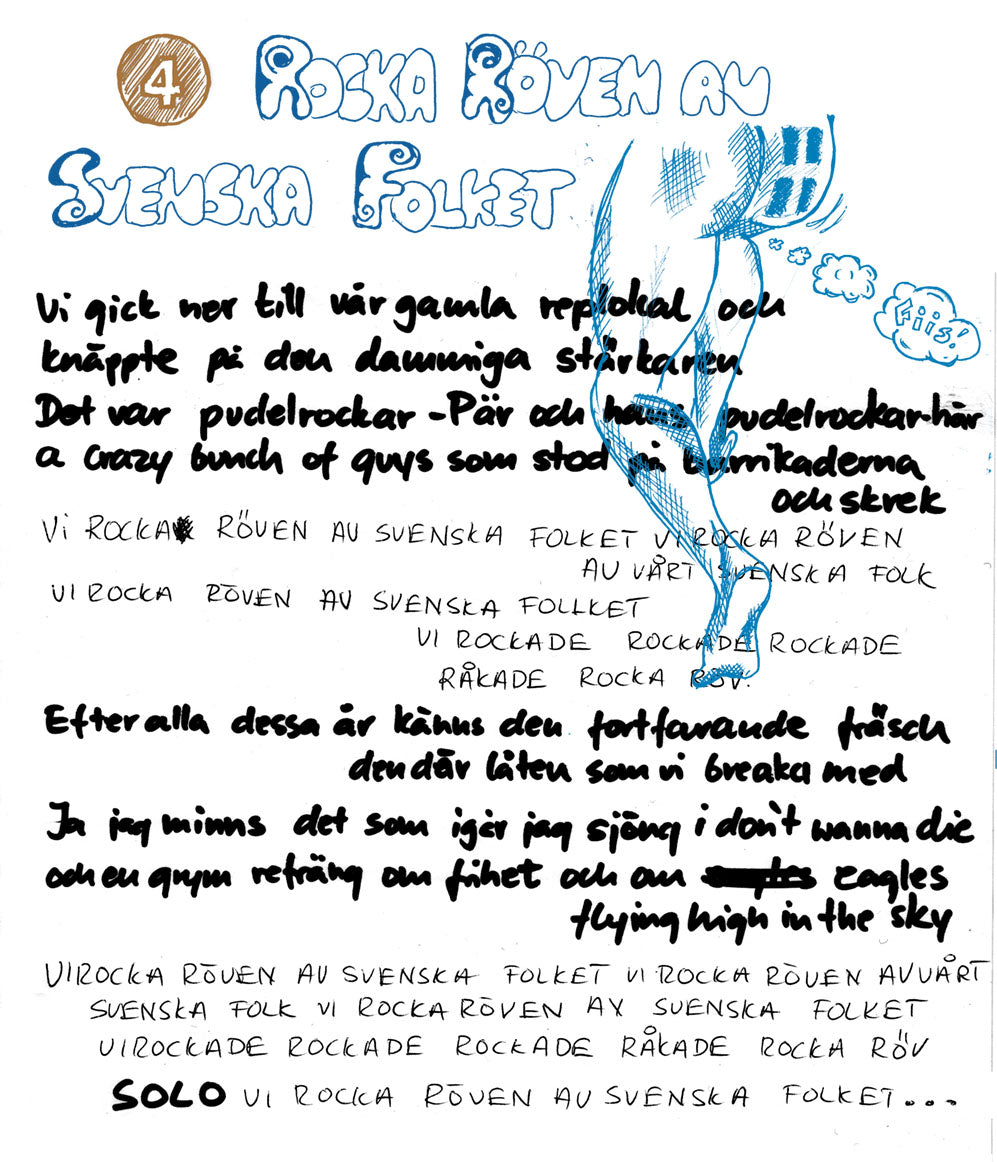 4. ROCKA RÖVEN AV
SVENSKA FOLKET
Vi gick ner till vår gamla replokal och
knäppte på den dammiga stärkaren
Fiis!
Det var pudelrockar-Pär och hans pudelrockar-hår
a crazy bunch of guys som stod på barrikaderna
och skrek
Vi ROCKA RÖVEN AV SVENSKA FOLKET VI ROCKA RÖVEN
AV VÅRT SVENSKA FOLK
VI ROCKA RÖVEN AV SVENSKA FOLLKET
VI ROCKADE ROCKADE ROCKADE
RÅKADE ROCKA RÖV.
Efter alla dessa år känns den fortfarande fräsch
den där låten som vi breaka med
Ja jag minns det som igår jag sjöng i don't wanna die
och en grym refräng om frihet och om eagles
flying high in the sky
VI ROCKA RÖVEN AV SVENSKA FOLKET VI ROCKA RÖVEN AV VÅRT
SVENSKA FOLK VI ROCKA RÖVEN AV SVENSKA FOLKET
VI ROCKADE ROCKADE ROCKADE RÅKADE ROCKA RÖV
SOLO VI ROCKA RÖVEN AV SVENSKA FOLKET...